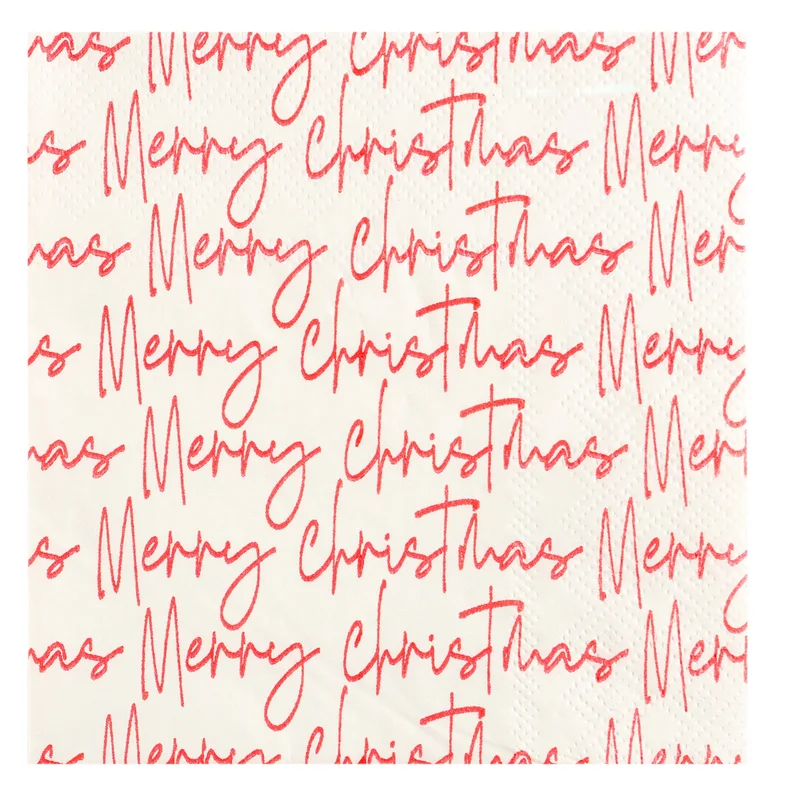 as Merry Christmas Mer
s Merry Christmas Merry
as Merry Christmas Mer
s Merry Christmas Merry
as Merry Christmas Mer
s Merry Christmas Merry
as Merry Christmas Mer
s Merry Christmas Merry